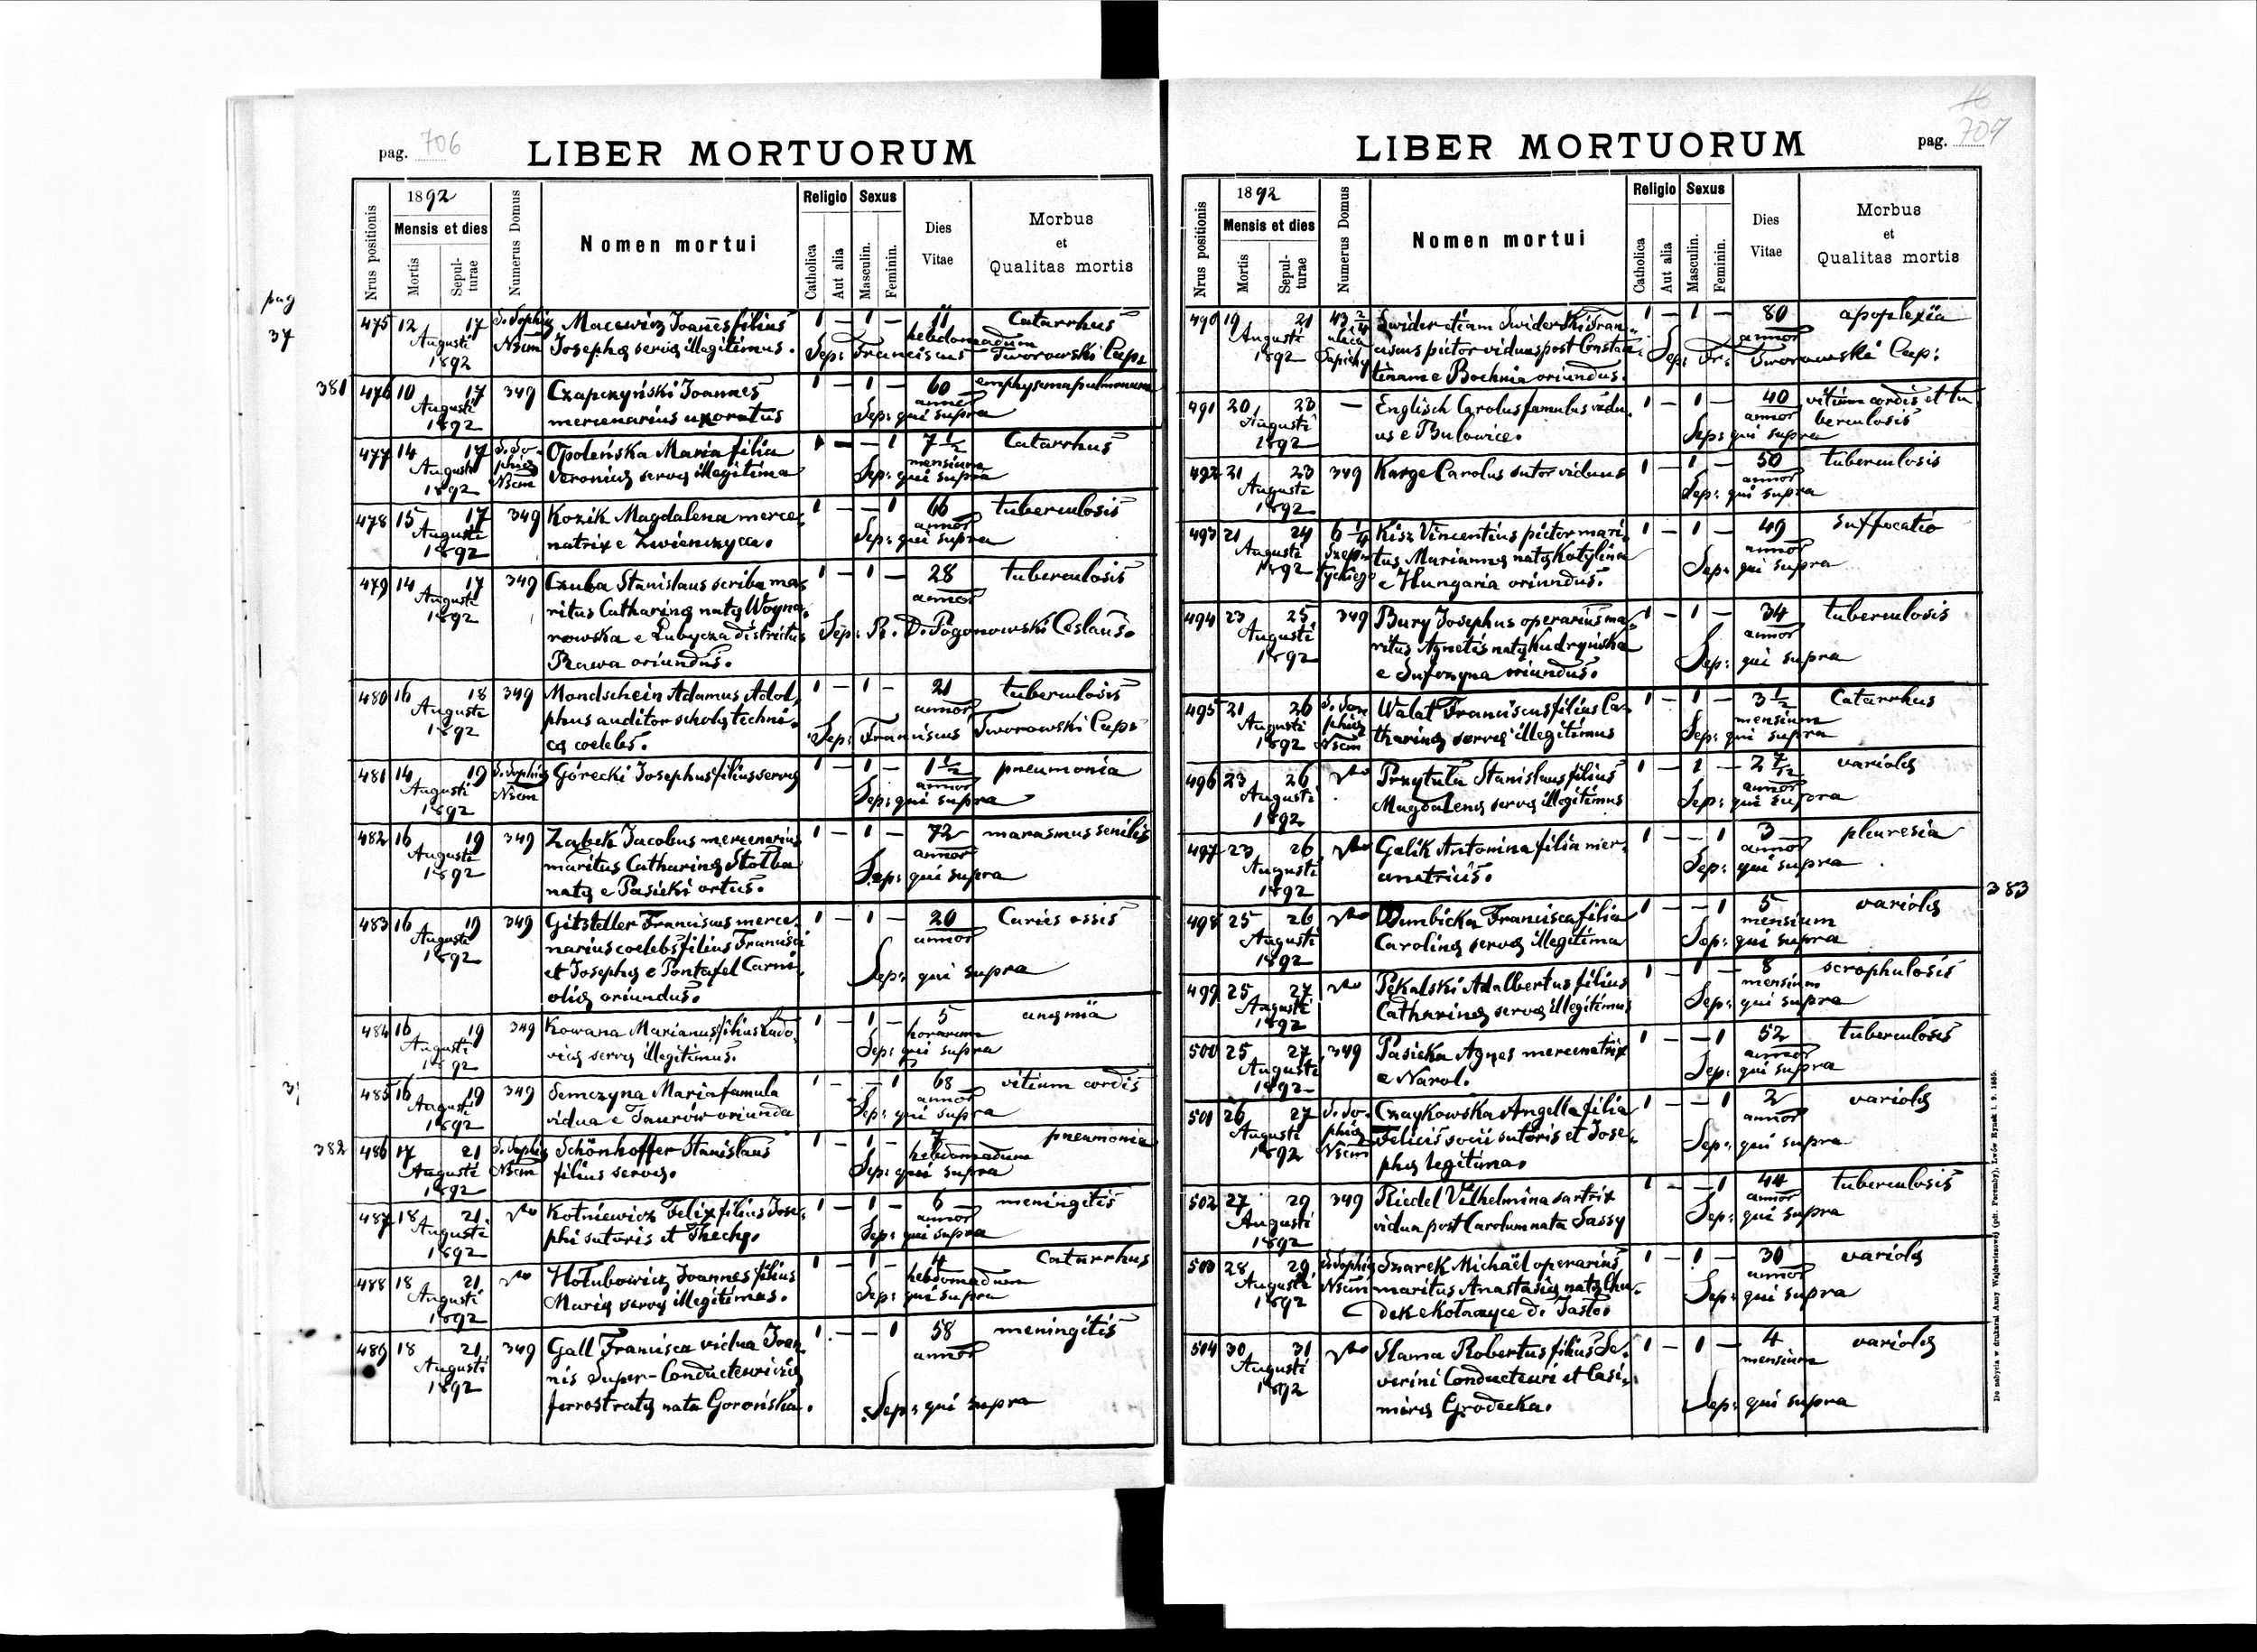 pag. 706
LIBER MORTUORUM
Nrus positionis
1892
Mensis et dies
Mortis
Sepulturae
Numerus Domus
Nomen mortui
Religio
Catholica
Aut alia
Sexus
Masculin.
Feminin.
Dies
Vitae
Morbus
et
Qualitas mortis
pag
37
475 12 17 S. Sophia Macewicz Joannes filius 1 — 1 — 11 Catarrhus
Augusti Nrem Josephae servae illegitimus. hebdomadum
1892 Sep: Franciscus Tworowski Cap:
381
476 10 17 349 Czapczyński Joannes 1 — 1 — 60 emphysema pulmonum
Augusti mercenarius uxoratus annor
1892 Sep: qui supra
477 14 17 S. So- Opoleńska Maria filia 1 — — 1 7 1/2 Catarrhus
Augusti phia Veronicae servae illegitima mensium
1892 Nrem Sep: qui supra
478 15 17 349 Kozik Magdalena merce- 1 — — 1 66 tuberculosis
Augusti natrix e Zwienczyca. annor
1892 Sep: qui supra
479 14 17 349 Czuba Stanislaus scriba ma- 1 — 1 — 28 tuberculosis
Augusti ritus Catharinae natae Woyna- annor
1892 rowska e Lubycza districtus Sep: R. D. Pogonowski Ceslaus.
Rawa oriundus.
480 16 18 349 Mondschein Adamus Adol- 1 — 1 — 21 tuberculosis
Augusti phus auditor scholae techni- annor
1892 cae coelebs. Sep: Franciscus Tworowski Cap:
481 14 19 S. Sophia Górecki Josephus filius servae 1 — 1 — 1 1/2 pneumonia
Augusti Nrem annor
1892 Sep: qui supra
482 16 19 349 Ząbek Jacobus mercenarius 1 — 1 — 72 marasmus senilis
Augusti maritus Catharinae Stołba annor
1892 natae e Pasieki ortus. Sep: qui supra
483 16 19 349 Gitzteller Franciscus merce- 1 — 1 — 20 Caries ossis
Augusti narius coelebs filius Francisci annor
1892 et Josephae e Pontafel Carni- Sep: qui supra
oliae oriundus.
484 16 19 349 Kowana Marianus filius Ludo- 1 — 1 — 5 anaemia
Augusti vicae servae illegitimus. horarum
1892 Sep: qui supra
485 16 19 349 Semczyna Maria famula 1 — — 1 68 vitium cordis
Augusti vidua e Taurów oriunda annor
1892 Sep: qui supra
382
486 17 21 S. Sophia Schönhoffer Stanislaus 1 — 1 — 7 pneumonia
Augusti Nrem filius servae. hebdomadum
1892 Sep: qui supra
487 18 21 Kotniewicz Felix filius Jose- 1 — 1 — 6 meningitis
Augusti phi sutoris et Theclae. annor
1892 Sep: qui supra
488 18 21 Hołubowicz Joannes filius 1 — 1 — 4 Catarrhus
Augusti Mariae servae illegitimus. hebdomadum
1892 Sep: qui supra
489 18 21 349 Gall Francisca vidua Joan- 1 — — 1 58 meningitis
Augusti nis Super-Conducteur viae annor
1892 ferrostratae nata Gorońska. Sep: qui supra
LIBER MORTUORUM
pag. 707
Nrus positionis
1892
Mensis et dies
Mortis
Sepulturae
Numerus Domus
Nomen mortui
Religio
Catholica
Aut alia
Sexus
Masculin.
Feminin.
Dies
Vitae
Morbus
et
Qualitas mortis
490 19 21 43 2/4 Swider etiam Swiderski Fran- 1 — 1 — 80 apoplexïa
Augusti ulica ciscus pictor viduus post Constan- annor
1892 Sapiehy tinam e Bochnia oriundus. Sep: Fr: Tworowski Cap:
491 20 23 — Englisch Carolus famulus vidu- 1 — 1 — 40 vitium cordis et tu
Augusti us e Bulowice. annor berculosis
1892 Sep: qui supra
492 21 23 349 Karge Carolus sutor viduus 1 — 1 — 50 tuberculosis
Augusti annor
1892 Sep: qui supra
493 21 24 6 1/4 Kisz Vincentius pictor mari- 1 — 1 — 49 suffocatio
Augusti Szep- tus Mariannae natae Katylina annor
1892 tyckiego e Hungaria oriundus. Sep: qui supra
494 23 25 349 Bury Josephus operarius ma- 1 — 1 — 34 tuberculosis
Augusti ritus Agnetis natae Kudryńska annor
1892 e Sufczyna oriundus. Sep: qui supra
495 21 26 S. So- Walat Franciscus filius Ca- 1 — 1 — 3 1/2 Catarrhus
Augusti phia tharinae servae illegitimus mensium
1892 Nrem Sep: qui supra
496 23 26 Przytuła Stanislaus filius 1 — 1 — 2 7/12 variolae
Augusti Magdalenae servae illegitimus annor
1892 Sep: qui supra
497 23 26 Galik Antonina filia mer- 1 — — 1 3 pleuresia
Augusti cenatricis. annor
1892 Sep: qui supra
383
498 25 26 Dembicka Francisca filia 1 — — 1 5 variolae
Augusti Carolinae servae illegitima mensium
1892 Sep: qui supra
499 25 27 Pękalski Adalbertus filius 1 — 1 — 8 scrophulosis
Augusti Catharinae servae illegitimus mensium
1892 Sep: qui supra
500 25 27 349 Pasieka Agnes mercenatrix 1 — — 1 52 tuberculosis
Augusti e Narol. annor
1892 Sep: qui supra
501 26 27 S. So- Czaykowska Angella filia 1 — — 1 2 variolae
Augusti phia Felicis socii sutoris et Jose- annor
1892 Nrem phae legitima. Sep: qui supra
502 27 29 349 Riedel Vilhelmina sartrix 1 — — 1 44 tuberculosis
Augusti vidua post Carolum nata Sassy annor
1892 Sep: qui supra
503 28 29 S. Sophia Szarek Michaël operarius 1 — 1 — 30 variolae
Augusti Nrem maritus Anastasiae natae Chu- annor
1892 dek e Kołaczyce d. Jasło. Sep: qui supra
504 30 31 Slama Robertus filius Se- 1 — 1 — 4 variolae
Augusti verini Conducteuri et Casi- mensium
1892 mirae Grodecka. Sep: qui supra